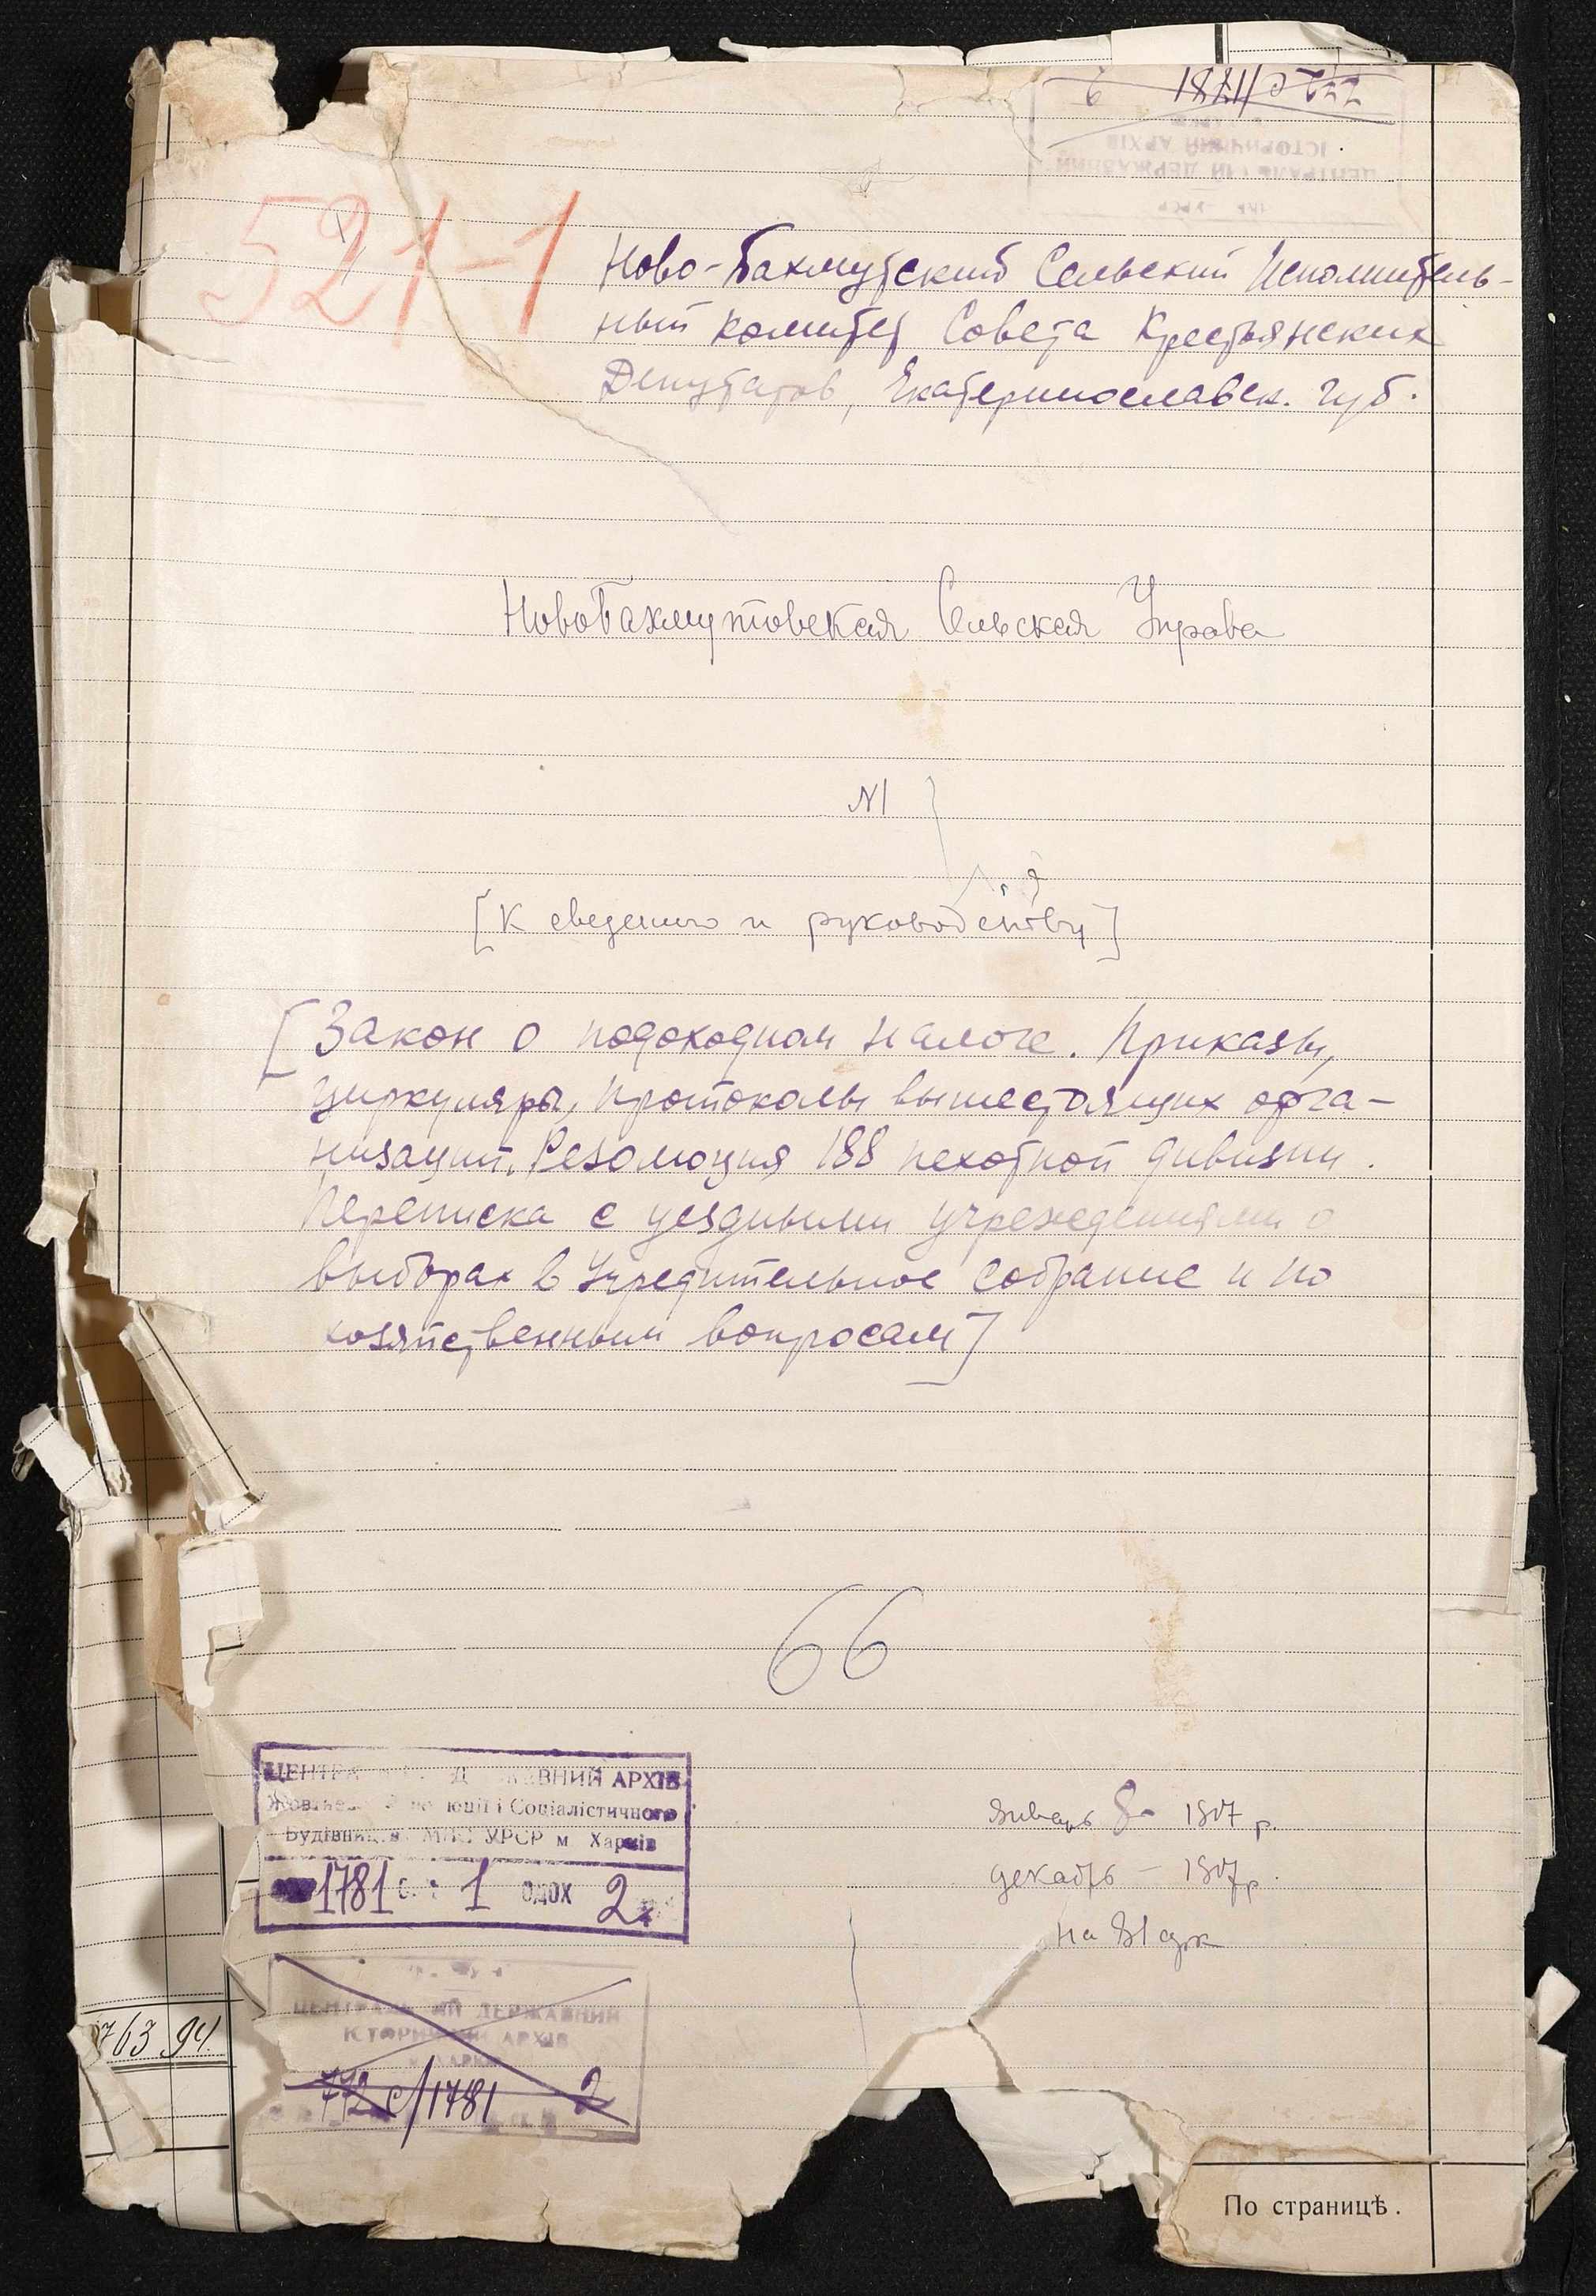 772 с/1781 2
ЦЕНТРАЛЬНИЙ ДЕРЖАВНИЙ
ІСТОРИЧНИЙ АРХІВ
521-1
Ново-Бахмутский Сельский Исполнитель-
ный комитет Совета Крестьянских
Депутатов, Екатеринославск. губ.
НовоБахмутовская Сельская Управа
N1
[К сведению и руководству]
[Закон о подоходном налоге. Приказы,
циркуляры, протоколы вышестоящих орга-
низаций. Резолюция 188 пехотной дивизии.
Переписка с уездными учреждениями о
выборах в Учредительное собрание и по
хозяйственным вопросам]
66
ЦЕНТРАЛЬНИЙ ДЕРЖАВНИЙ АРХІВ
Жовтневої Революції і Соціалістичного
Будівництва УРСР м Харків
1781 1 2
январь 1917 г.
декабрь – 1917 г.
на
ЦЕНТРАЛЬНИЙ ДЕРЖАВНИЙ
ІСТОРИЧНИЙ АРХІВ
772 с/1781 2
763 94
По страницѣ.